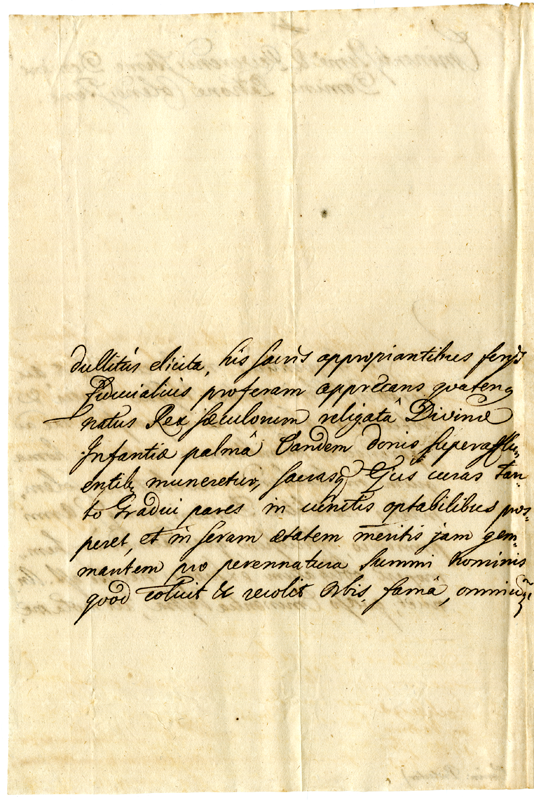 dultitus elicita, his sacris appropiantibus ferijs
Fiducialius proferam apprecans quateng
natus Rex sæculorum religatâ Divinæ
Infantiæ palmâ Eandem donis superafflu-
entibg muneretur, sacrasq Ejus curas tan-
to Gradui pares in cunctis optabilibus pros-
peret et in seram ætatem meritis jam gem-
mantem pro perennatura summi Nominis
quod coluit & recolit Orbis, famâ, omnium